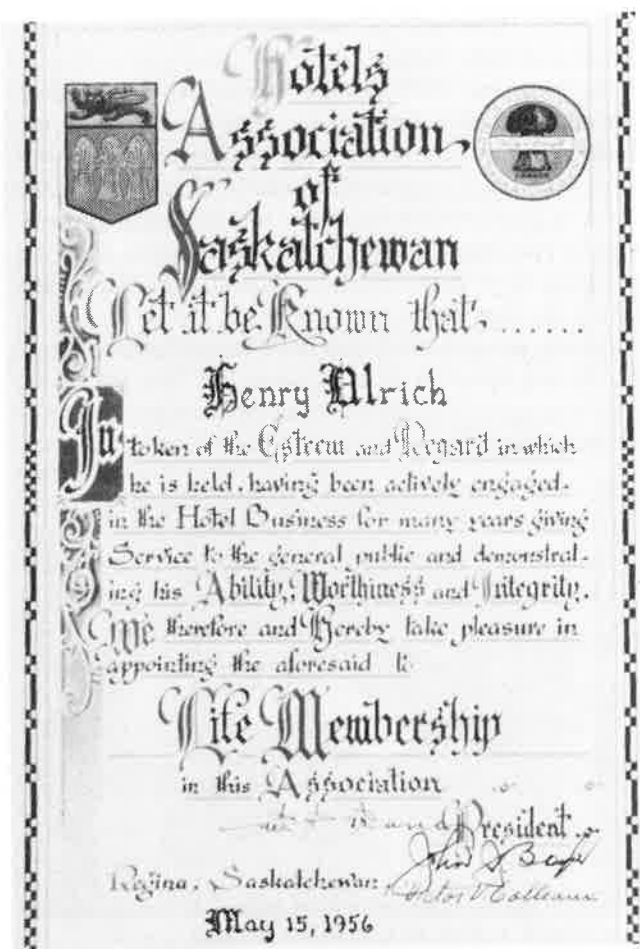 Hotels
Association
of
Saskatchewan
Let it be Known that ......
Henry Ulrich
In token of the Esteem and Regard in which
he is held, having been actively engaged
in the Hotel Business for many years giving
Service to the general public and demonstrat-
ing his Ability, Worthiness and Integrity.
We therefore and Hereby take pleasure in
appointing the aforesaid to
Life Membership
in this Association
President
John
Regina, Saskatchewan
May 15, 1956